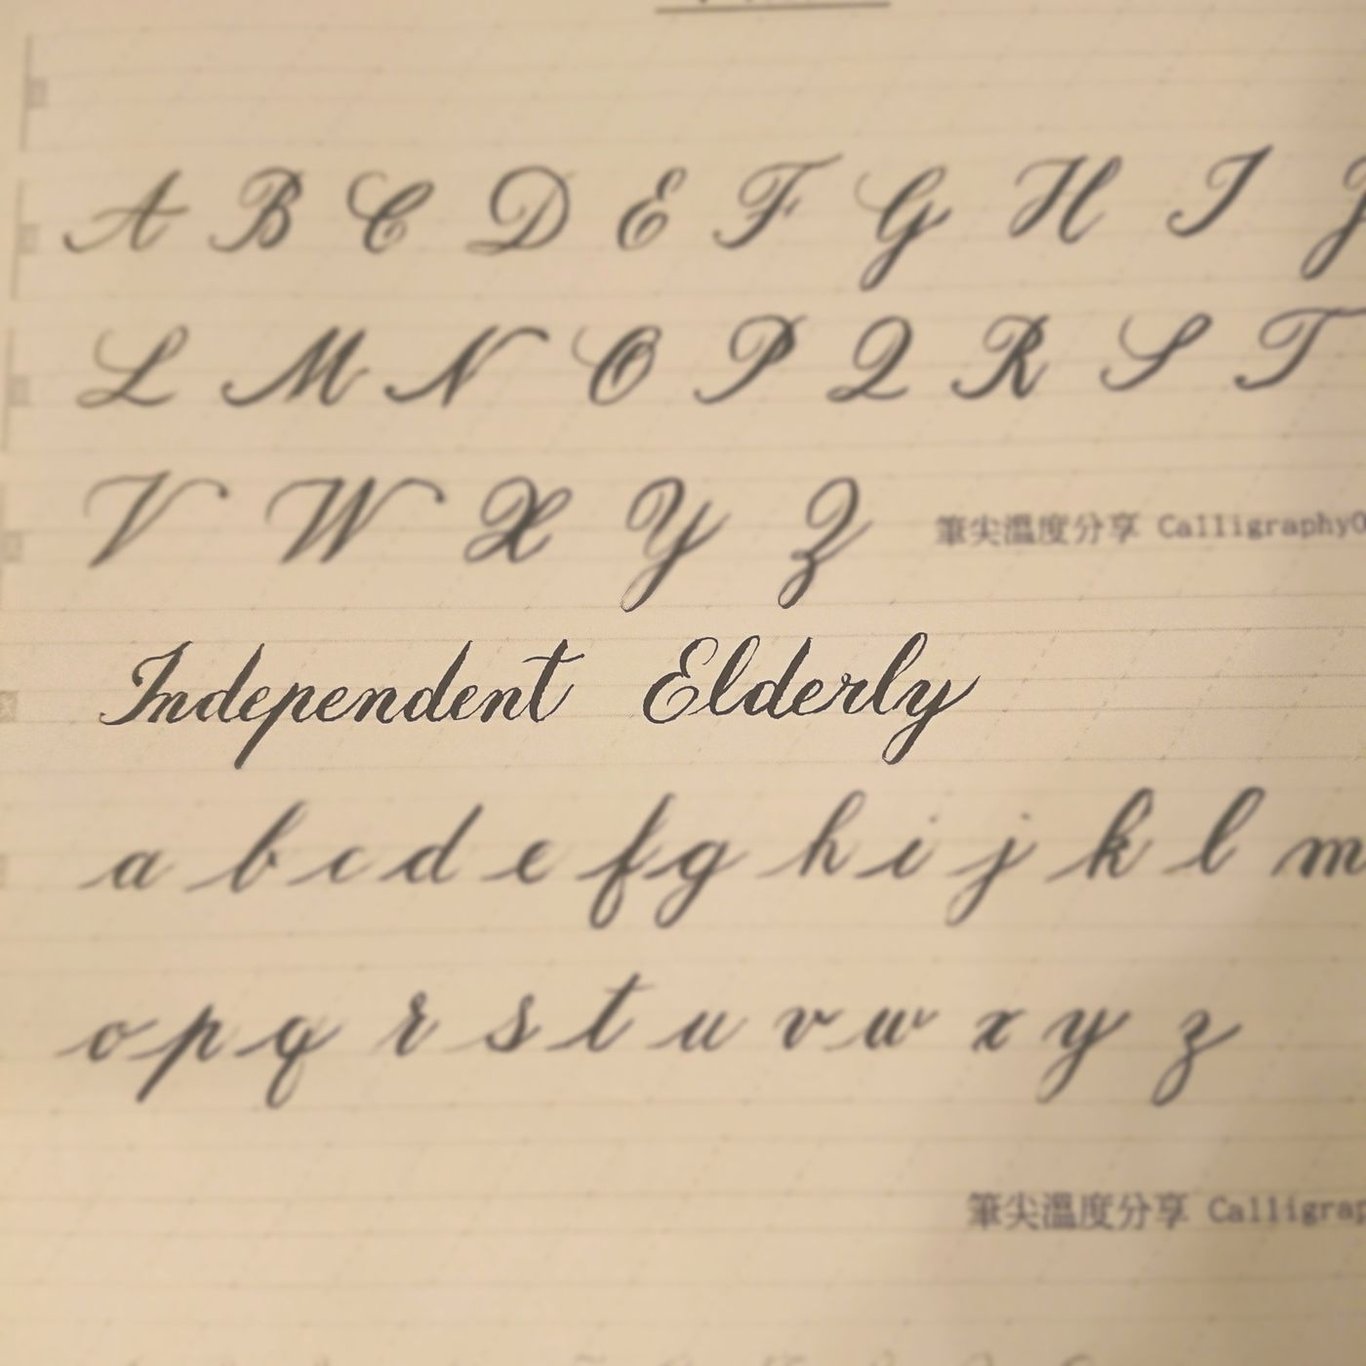 A B C D E F G H I J
L M N O P Q R S T
V W X Y Z 筆尖溫度分享 Calligraphy
Independent Elderly
a b c d e f g h i j k l m
o p q r s t u v w x y z
筆尖溫度分享 Calligrap